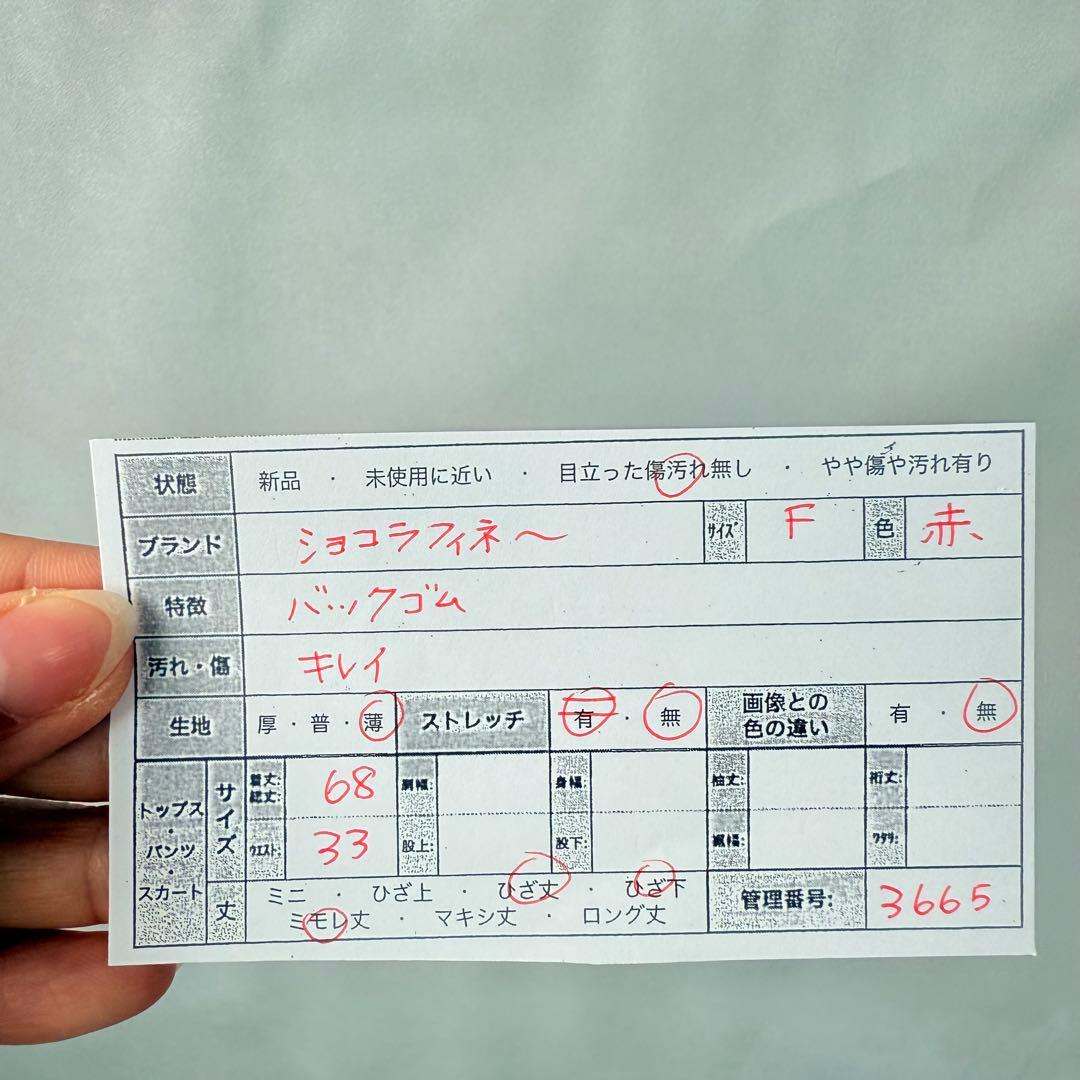 状態 新品 ・ 未使用に近い ・ 目立った傷汚れ無し ・ やや傷や汚れ有り
ブランド ショコラフィネ〜 サイズ F 色 赤、
特徴 バックゴム
汚れ・傷 キレイ
生地 厚・普・薄 ストレッチ 有・無 画像との色の違い 有・無
トップス・パンツ・スカート サイズ 着丈:総丈: 68 肩幅: 身幅: 袖丈: 裄丈:
ウエスト: 33 股上: 股下: 裾幅: ワタリ:
丈 ミニ ・ ひざ上 ・ ひざ丈 ・ ひざ下
ミモレ丈 ・ マキシ丈 ・ ロング丈
管理番号: 3665